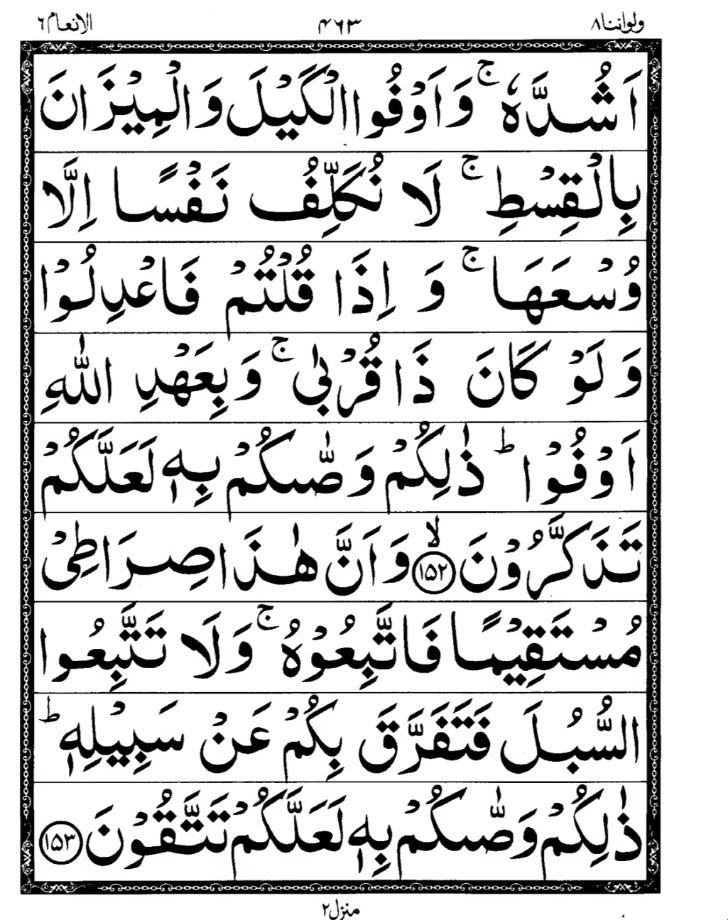 ولواننا ٨ ۴۶۳ الانعام ٦
اَشُدَّهٗ ۚ وَاَوْفُوا الْكَيْلَ وَالْمِيْزَانَ
بِالْقِسْطِ ۚ لَا نُكَلِّفُ نَفْسًا اِلَّا
وُسْعَهَا ۚ وَ اِذَا قُلْتُمْ فَاعْدِلُوْا
وَ لَوْ كَانَ ذَا قُرْبٰى ۚ وَبِعَهْدِ اللّٰهِ
اَوْفُوْا ؕ ذٰلِكُمْ وَصّٰىكُمْ بِهٖ لَعَلَّكُمْ
تَذَكَّرُوْنَ ۙ‏ ﴿١٥٢﴾ وَاَنَّ هٰذَا صِرَاطِىْ
مُسْتَقِيْمًا فَاتَّبِعُوْهُ ۚ وَلَا تَتَّبِعُوا
السُّبُلَ فَتَفَرَّقَ بِكُمْ عَنْ سَبِيْلِهٖ ؕ
ذٰلِكُمْ وَصّٰىكُمْ بِهٖ لَعَلَّكُمْ تَتَّقُوْنَ ﴿١٥٣﴾
منزل ٢